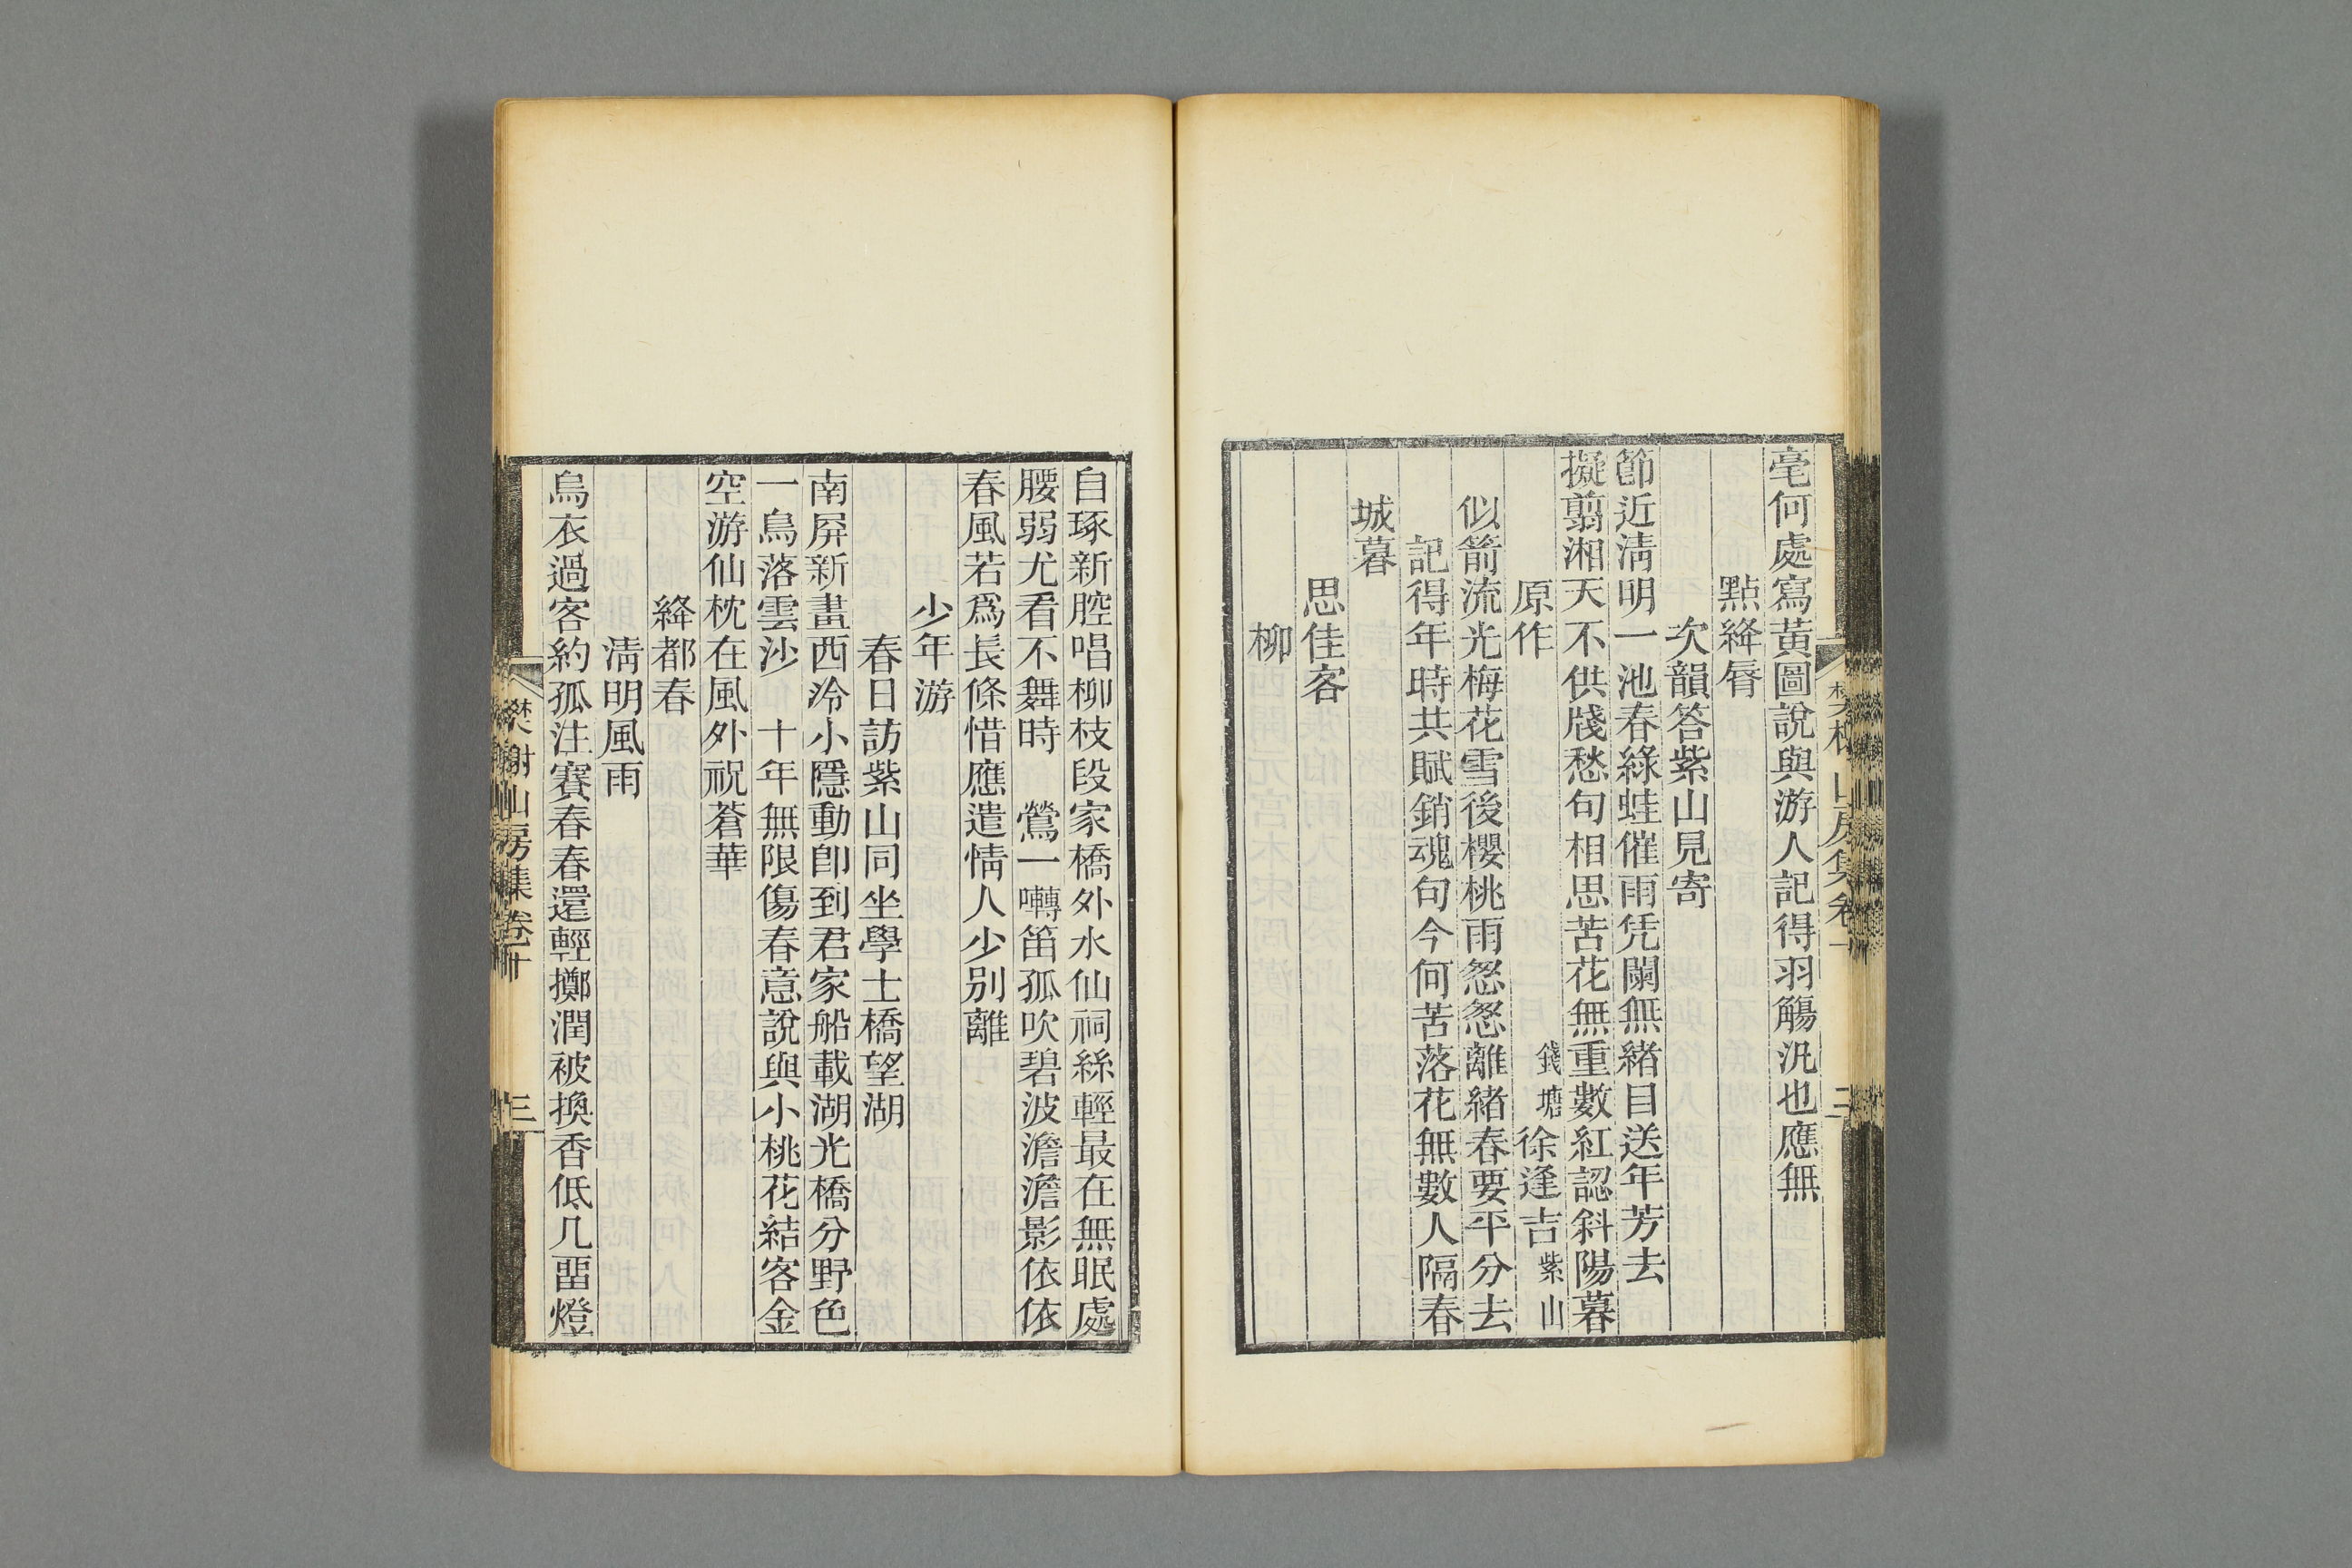 毫何處寫黃圖說與游人記得羽觴汎也應無
點絳脣
次韻答紫山見寄
節近淸明一池春綠蛙催雨凭闌無緖目送年芳去
擬翦湘天不供牋愁句相思苦花無重數紅認斜陽暮
原作 錢塘徐逢吉紫山
似箭流光梅花雪後櫻桃雨怱怱離緖春要平分去
記得年時共賦銷魂句今何苦落花無數人隔春
城暮
思佳客
柳
自琢新腔唱柳枝段家橋外水仙祠絲輕最在無眠處
腰弱尤看不舞時 鶯一囀笛孤吹碧波澹澹影依依
春風若爲長條惜應遣情人少別離
少年游
春日訪紫山同坐學士橋望湖
南屏新畫西泠小隱動卽到君家船載湖光橋分野色
一鳥落雲沙 十年無限傷春意說與小桃花結客金
空游仙枕在風外祝蒼華
絳都春
淸明風雨
烏衣過客約孤注賽春春還輕擲潤被換香低几畱燈
樊榭山房集卷十
三